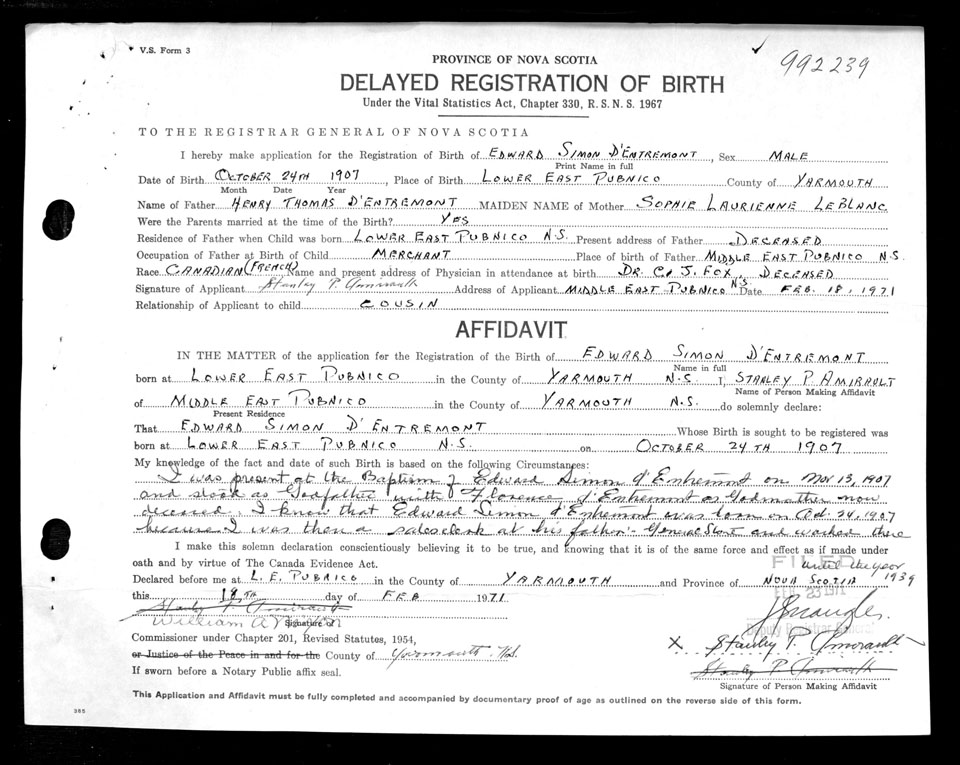 V.S. Form 3
992239
PROVINCE OF NOVA SCOTIA
DELAYED REGISTRATION OF BIRTH
Under the Vital Statistics Act, Chapter 330, R.S.N.S. 1967
TO THE REGISTRAR GENERAL OF NOVA SCOTIA
I hereby make application for the Registration of Birth of EDWARD SIMON D'ENTREMONT, Sex MALE
Print Name in full
Date of Birth OCTOBER 24TH 1907, Place of Birth LOWER EAST PUBNICO County of YARMOUTH
Month Date Year
Name of Father HENRY THOMAS D'ENTREMONT MAIDEN NAME of Mother SOPHIE LAURIENNE LEBLANC
Were the Parents married at the time of the Birth? YES
Residence of Father when Child was born LOWER EAST PUBNICO N.S. Present address of Father DECEASED
Occupation of Father at Birth of Child MERCHANT Place of birth of Father MIDDLE EAST PUBNICO N.S.
Race CANADIAN (FRENCH) Name and present address of Physician in attendance at birth DR. C. J. FOX, DECEASED
Signature of Applicant Stanley P. Amirault Address of Applicant MIDDLE EAST PUBNICO N.S. Date FEB. 18, 1971
Relationship of Applicant to child COUSIN
AFFIDAVIT
IN THE MATTER of the application for the Registration of the Birth of EDWARD SIMON D'ENTREMONT
Name in full
born at LOWER EAST PUBNICO in the County of YARMOUTH N.S. I, STANLEY P. AMIRAULT
Name of Person Making Affidavit
of MIDDLE EAST PUBNICO in the County of YARMOUTH N.S. do solemnly declare:
Present Residence
That EDWARD SIMON D'ENTREMONT Whose Birth is sought to be registered was
born at LOWER EAST PUBNICO N.S. on OCTOBER 24TH 1907
My knowledge of the fact and date of such Birth is based on the following Circumstances:
I was present at the Baptism of Edward Simon d'Entremont on Nov 13, 1907
and stood as Godfather with Florence d'Entremont as Godmother now
deceased. I know that Edward Simon d'Entremont was born on Oct. 24, 1907
because I was then a salesclerk at his father General Store and worked there
until the year 1939
I make this solemn declaration conscientiously believing it to be true, and knowing that it is of the same force and effect as if made under
oath and by virtue of The Canada Evidence Act.
FILED
Declared before me at L. E. PUBNICO in the County of YARMOUTH and Province of NOVA SCOTIA
this 18TH day of FEB 1971
FEB 23 1971
Stanley P. Amirault
William A
Signature of
Deputy Registrar General
Commissioner under Chapter 201, Revised Statutes, 1954,
X Stanley P. Amirault
or Justice of the Peace in and for the County of Yarmouth N.S.
Stanley P Amirault
If sworn before a Notary Public affix seal.
Signature of Person Making Affidavit
This Application and Affidavit must be fully completed and accompanied by documentary proof of age as outlined on the reverse side of this form.
385